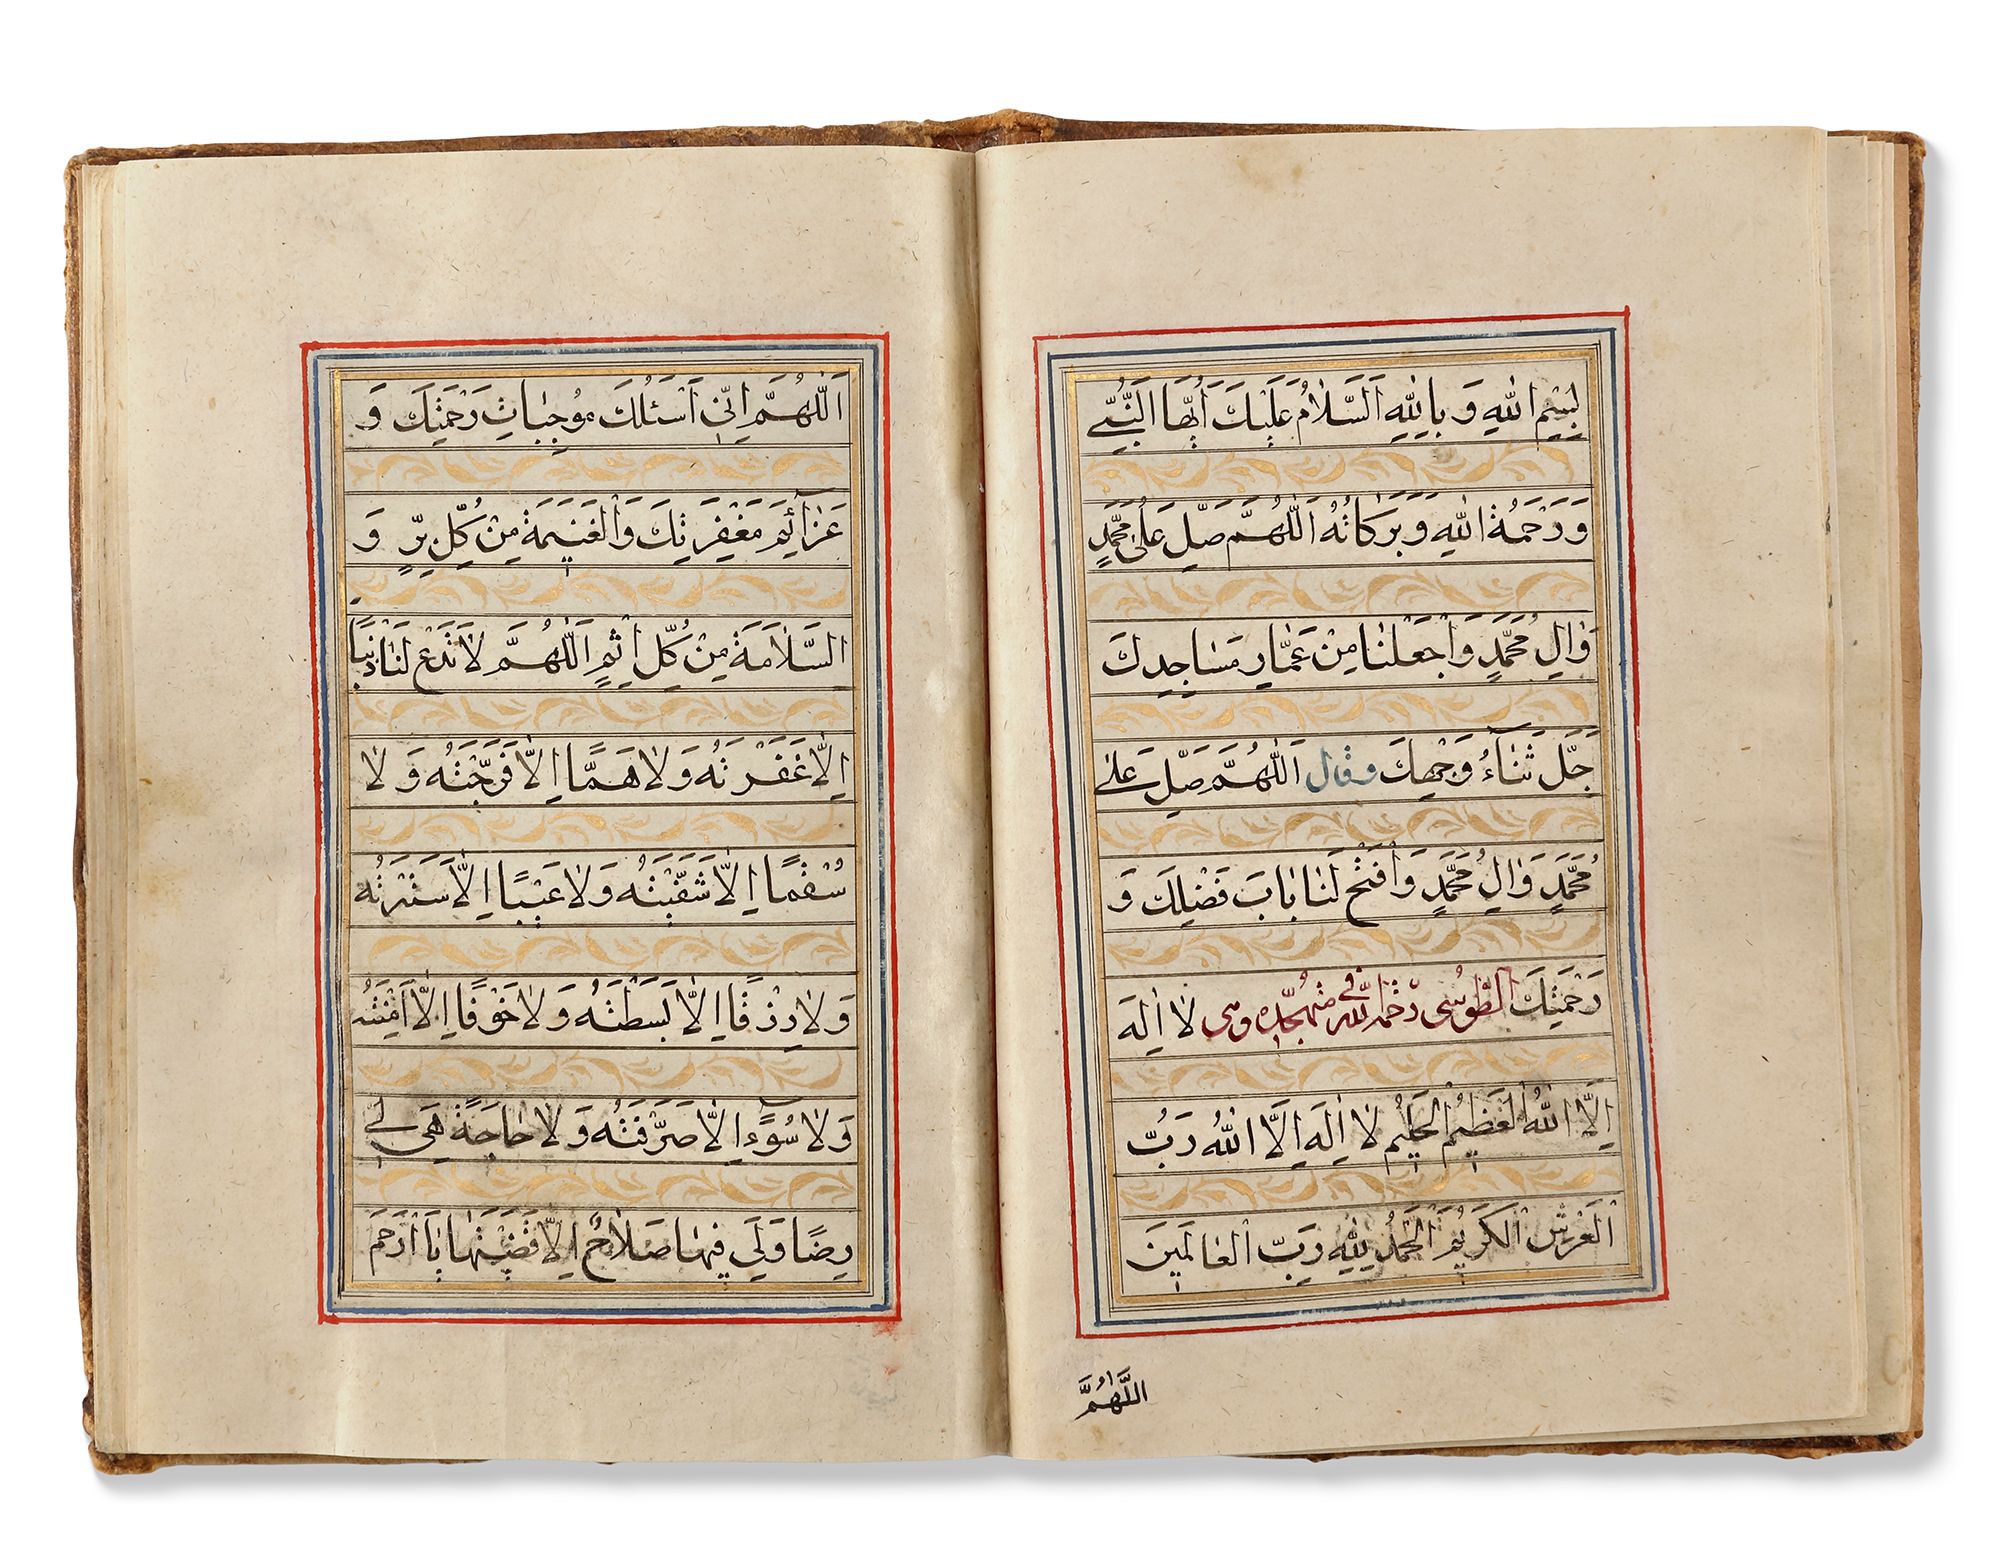 بِسْمِ اللهِ وَ بِاللهِ اَلسَّلَامُ عَلَيْكَ اَيُّهَا النَّبِيُّ
وَ رَحْمَةُ اللهِ وَ بَرَكَاتُهُ اَللّٰهُمَّ صَلِّ عَلٰى مُحَمَّدٍ
وَاٰلِ مُحَمَّدٍ وَاجْعَلْنَا مِنْ عُمَّارِ مَسَاجِدِكَ
جَلَّ ثَنَآءُ وَجْهِكَ وقال اَللّٰهُمَّ صَلِّ عَلٰى
مُحَمَّدٍ وَاٰلِ مُحَمَّدٍ وَافْتَحْ لَنَا بَابَ فَضْلِكَ وَ
رَحْمَتِكَ الطّوسى رحمه اللّه فى متهجّده وهى لَا اِلٰهَ
اِلَّا اللهُ الْعَظِيْمُ الْحَلِيْمُ لَا اِلٰهَ اِلَّا اللهُ رَبُّ
الْعَرْشِ الْكَرِيْمِ اَلْحَمْدُ لِلّٰهِ رَبِّ الْعَالَمِيْنَ
اللّٰهُمَّ
اَللّٰهُمَّ اِنّى اَسْئَلُكَ مُوْجِبَاتِ رَحْمَتِكَ وَ
عَزَآئِمَ مَغْفِرَتِكَ وَالْغَنِيْمَةَ مِنْ كُلِّ بِرٍّ وَ
السَّلَامَةَ مِنْ كُلِّ اِثْمٍ اَللّٰهُمَّ لَا تَدَعْ لَنَا ذَنْبًا
اِلَّا غَفَرْتَهُ وَ لَا هَمًّا اِلَّا فَرَّجْتَهُ وَ لَا
سُقْمًا اِلَّا شَفَيْتَهُ وَ لَا عَيْبًا اِلَّا سَتَرْتَهُ
وَ لَا رِزْقًا اِلَّا بَسَطْتَهُ وَ لَا خَوْفًا اِلَّا اٰمَنْتَهُ
وَ لَا سُوْءً اِلَّا صَرَفْتَهُ وَ لَا حَاجَةً هِىَ لَكَ
رِضًا وَلِىَ فِيْهَا صَلَاحٌ اِلَّا قَضَيْتَهَا يَا اَرْحَمَ